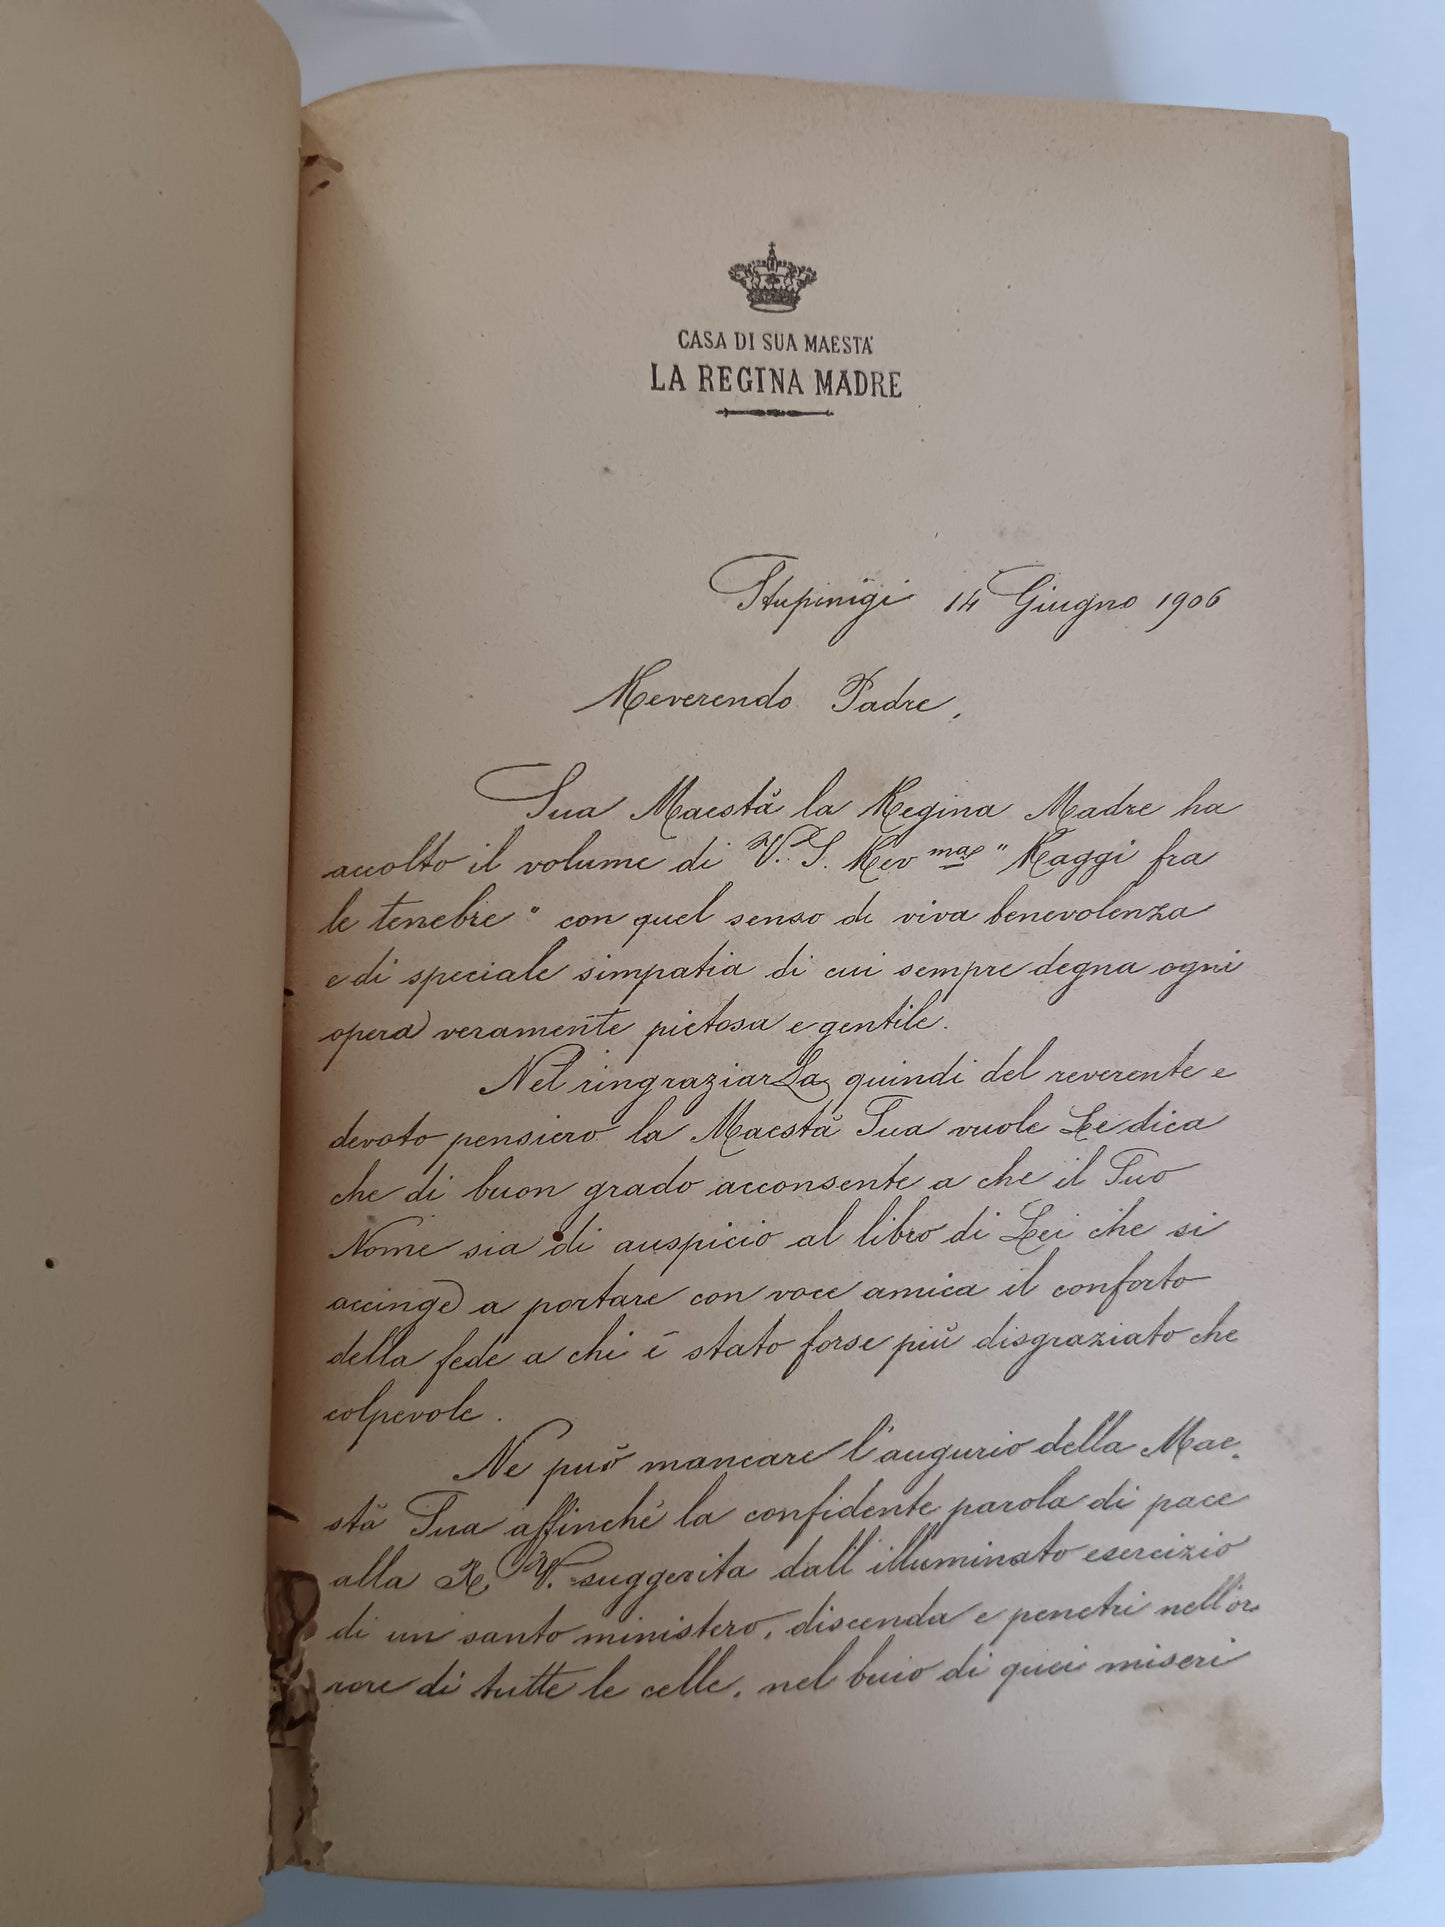 CASA DI SUA MAESTA'
LA REGINA MADRE
Stupinigi 14 Giugno 1906
Reverendo Padre,
Sua Maestà la Regina Madre ha
accolto il volume di V. S. Rev ma "Raggi fra
le tenebre" con quel senso di viva benevolenza
e di speciale simpatia di cui sempre degna ogni
opera veramente pietosa e gentile.
Nel ringraziarLa quindi del reverente e
devoto pensiero la Maestà Sua vuole Le dica
che di buon grado acconsente a che il Suo
Nome sia di auspicio al libro di Lei che si
accinge a portare con voce amica il conforto
della fede a chi è stato forse più disgraziato che
colpevole.
Ne può mancare l'augurio della Mae-
stà Sua affinché la confidente parola di pace
alla R. V. suggerita dall'illuminato esercizio
di un santo ministero, discenda e penetri nell'or-
rore di tutte le celle, nel buio di quei miseri